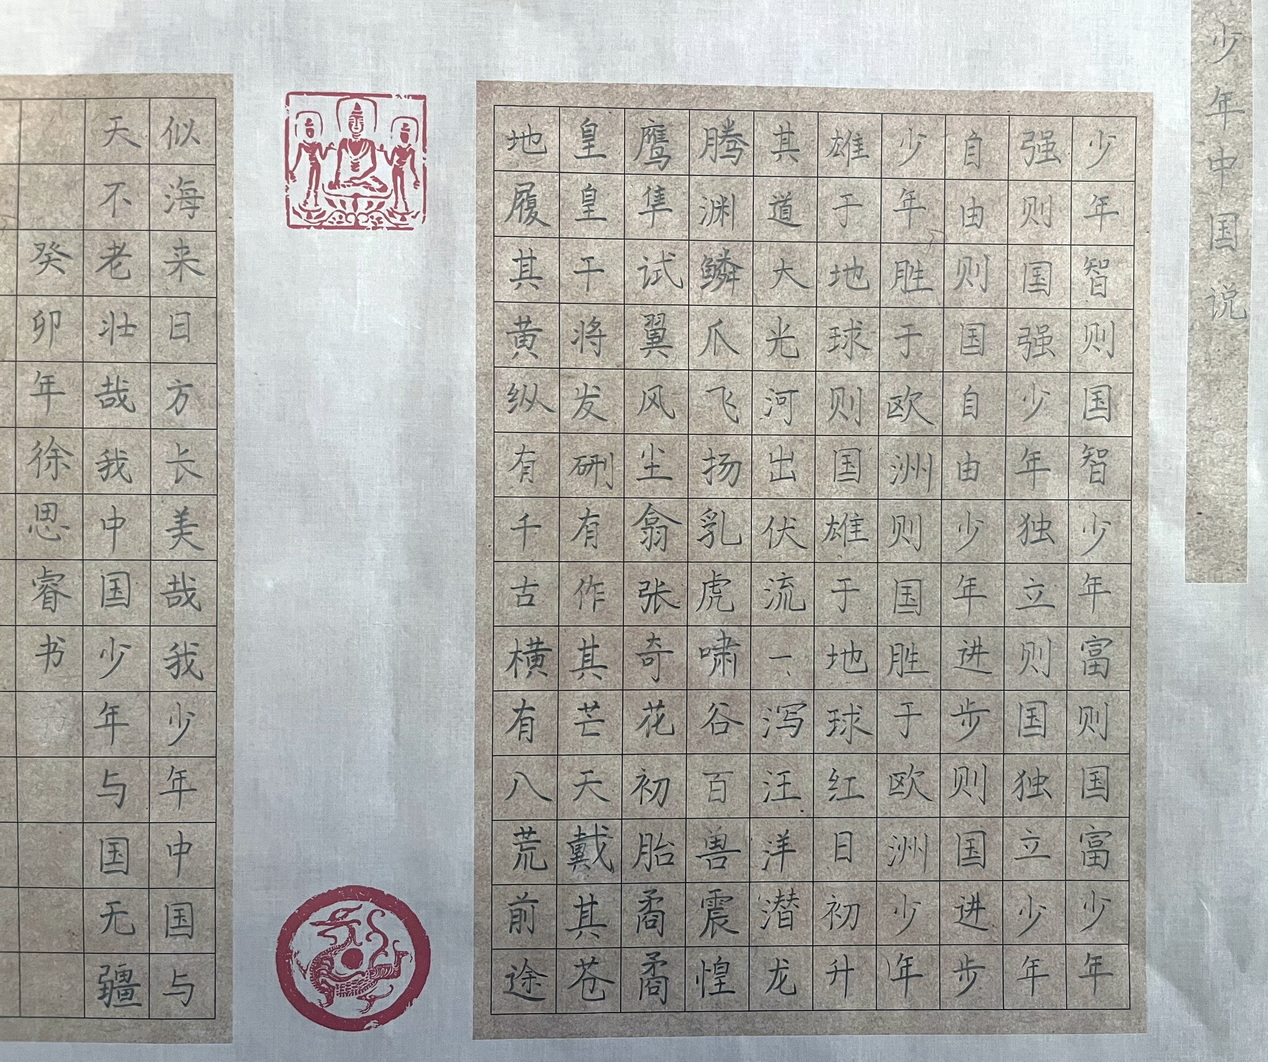 少年中国说
少年智则国智少年富则国富少年
强则国强少年独立则国独立少年
自由则国自由少年进步则国进步
少年胜于欧洲则国胜于欧洲少年
雄于地球则国雄于地球红日初升
其道大光河出伏流一泻汪洋潜龙
腾渊鳞爪飞扬乳虎啸谷百兽震惶
鹰隼试翼风尘翕张奇花初胎矞矞
皇皇干将发硎有作其芒天戴其苍
地履其黄纵有千古横有八荒前途
似海来日方长美哉我少年中国与
天不老壮哉我中国少年与国无疆
癸卯年徐思睿书